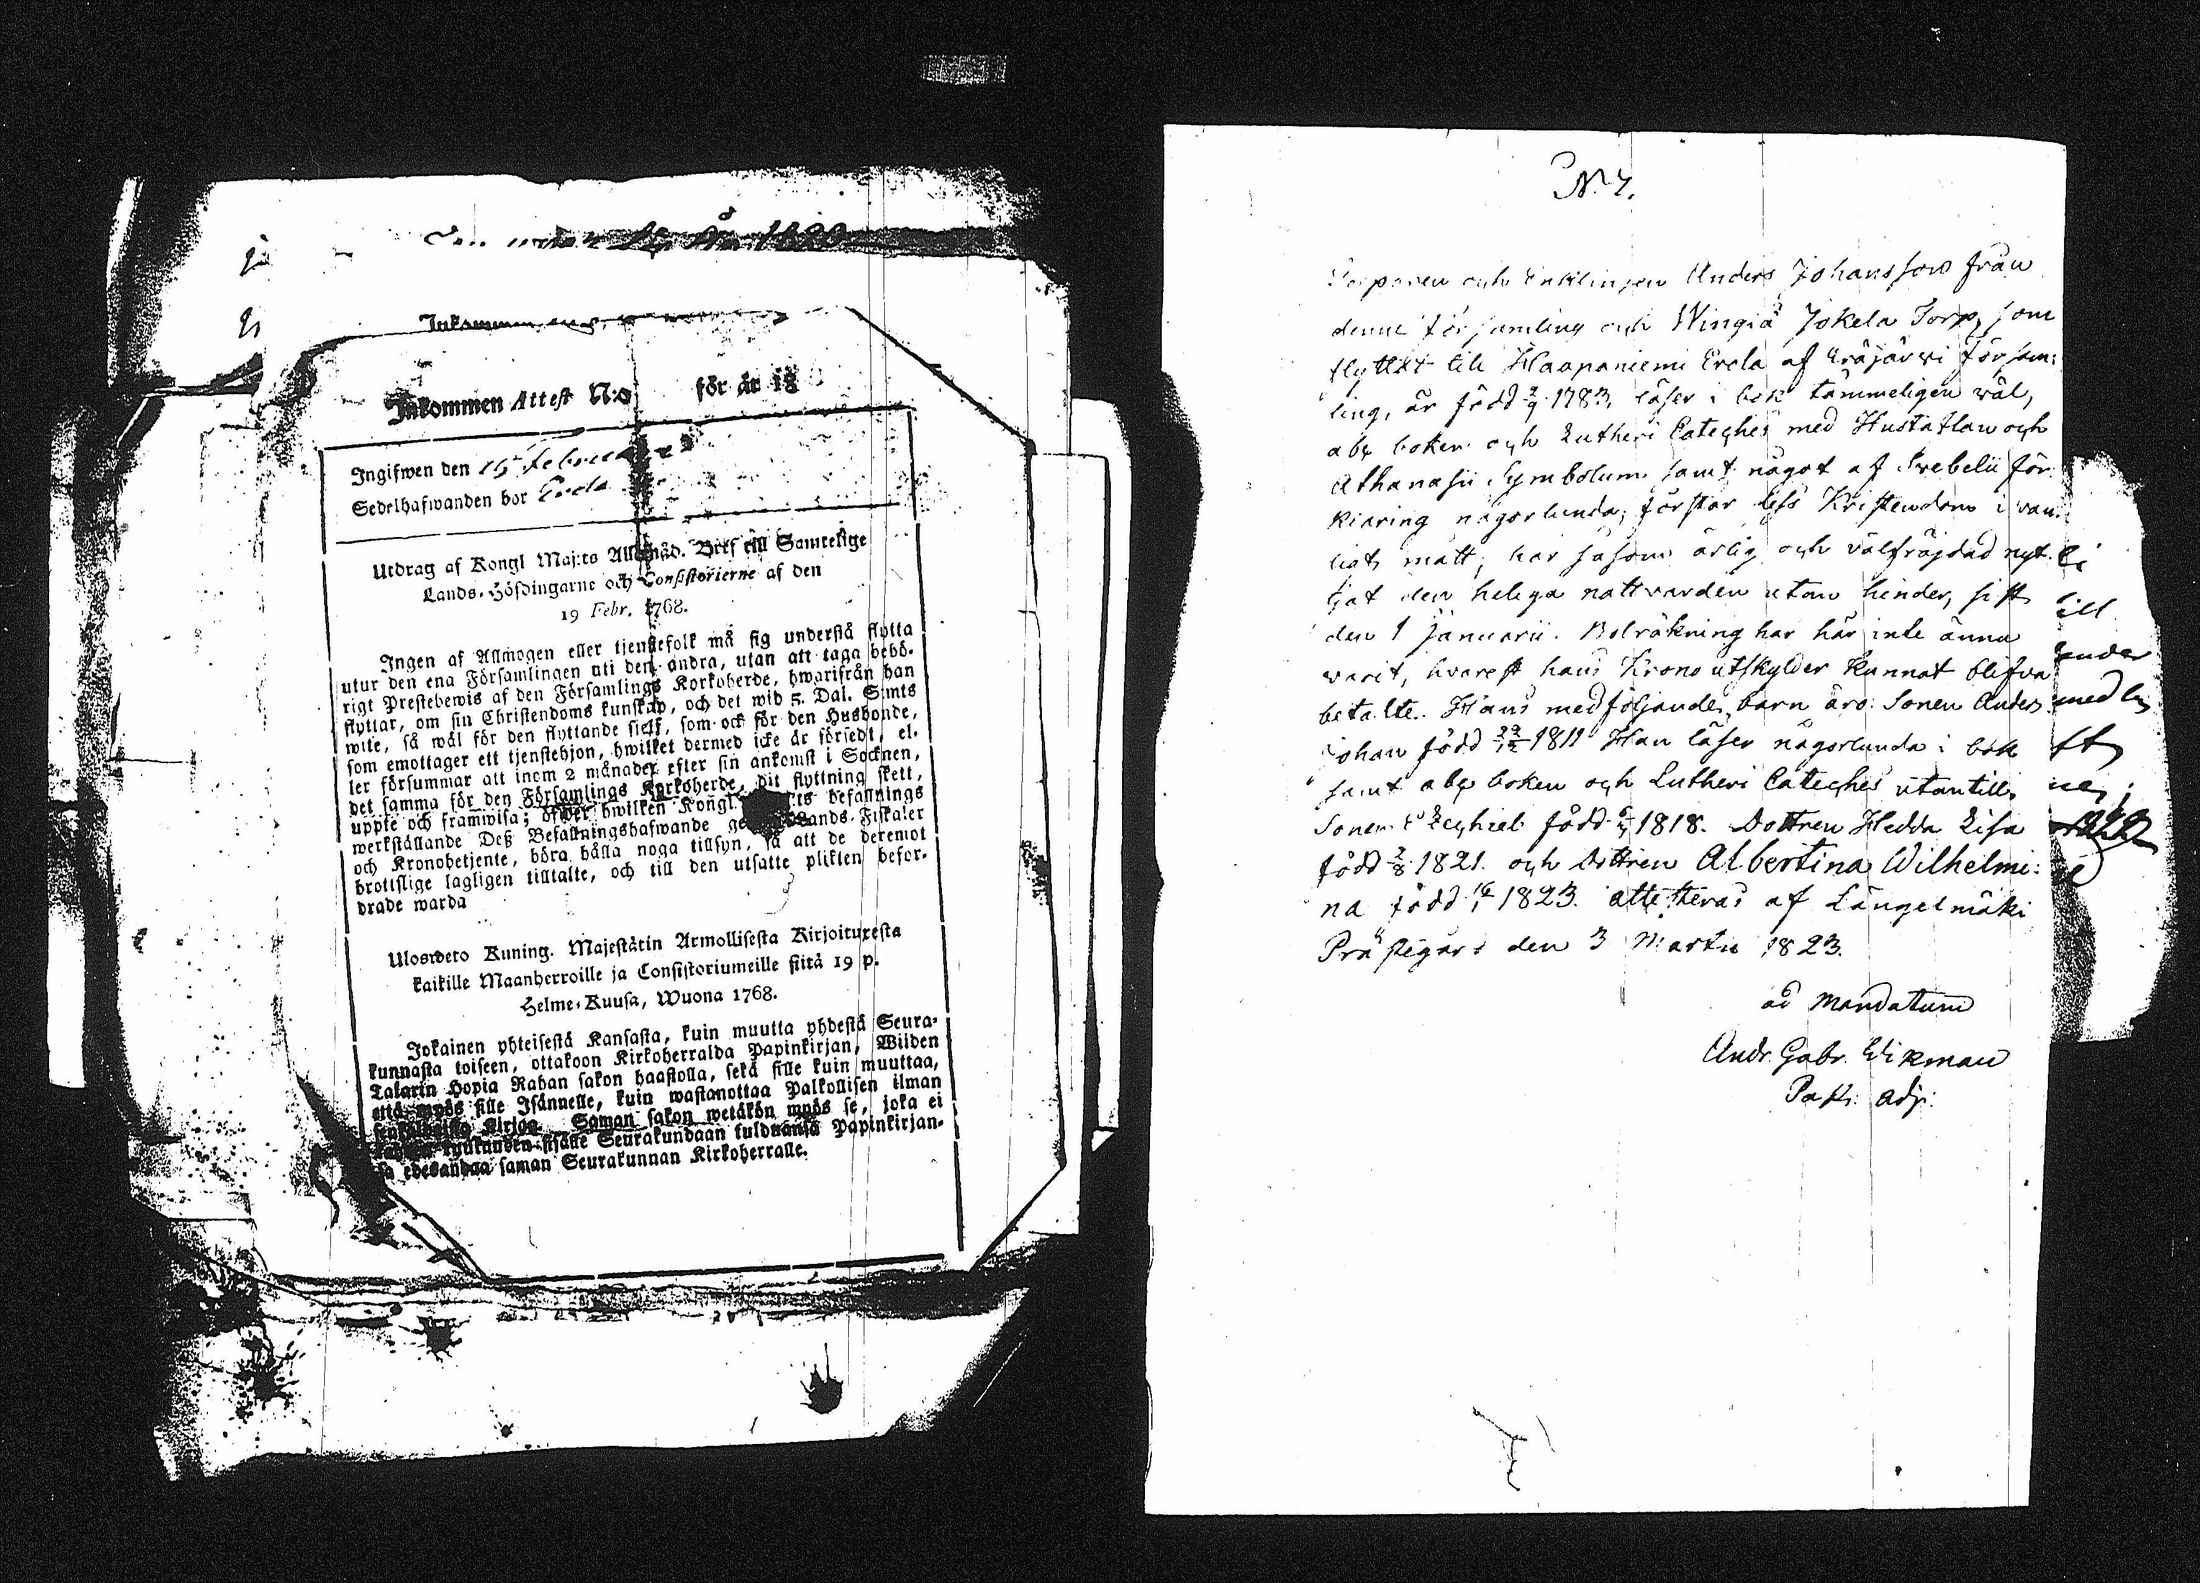 Inkommen Attest N:o för år 18
Ingifwen den 15 Februa
Sedelhafwanden bor Erola
Utdrag af Kongl Maj:ts Allernåd. Bref till Samtelige
Lands-Höfdingarne och Consistorierne af den
19 Febr. 1768.
Ingen af Allmogen eller tjenstefolk må sig understå flytta
utur den ena Församlingen uti den andra, utan att taga behö-
rigt Prestebewis af den Församlings Korkoherde, hwarifrån han
flyttar, om sin Christendoms kunskap, och det wid 5. Dal. S:mts
wite, så wäl för den flyttande sielf, som ock för den Husbonde,
som emottager ett tjenstehjon, hwilket dermed icke är försedt, el-
ler försummar att inom 2 månader efter sin ankomst i Socknen,
det samma för den Församlings Korkoherde, dit flyttning skett,
uppte och framwisa; öfwer hwilken Kongl. befallnings
werkställande Deß Befallningshafwande Lands-Fiskaler
och Kronobetjente, böra hålla noga tillsyn, så att de deremot
brottslige lagligen tilltalte, och till den utsatte plikten befor-
drade warda
Ulosweto Kuning. Majestätin Armollisesta Kirjoituxesta
kaikille Maanherroille ja Consistoriumeille siitä 19 p.
Helme-Kuusa, Wuona 1768.
Jokainen yhteisestä Kansasta, kuin muutta yhdestä Seura-
kunnasta toiseen, ottakoon Kirkoherralda Papinkirjan, Wiiden
Talarin Hopia Rahan sakon haastolla, sekä sille kuin muuttaa,
että myös sille Isännelle, kuin wastanottaa Palkollisen ilman
Kirjaa. Saman sakon wetäkön myös se, joka ei
sisälle Seurakundaan tulduansa Papinkirjan-
sa edesandaa saman Seurakunnan Kirkoherralle.
N 7.
och Enklingen Anders Johansson från
denne församling och Wingiä Jokela Torp, som
flyttat till Haapaniemi Erola af Eräjärwi försam:
ling, är född 2/9 1783, läser i bok tämmeligen wäl,
abc boken och Lutheri Cateches med Hustaflan och
Athanasii Symbolum samt något af Svebelii för
klaring någorlunda, förstår dess Kristendom i van:
ligt mått, har såsom ärlig och välfräjdad nyt
tjat den heliga nattvarden utan hinder, sist
den 1 Januarii. Bolräkning har här inte ännu
warit, hvarest hans Krono utskylder kunnat blifva
betalte. Hans medföljande barn äro: Sonen Anders
Johan född 23/12 1811 Han läser någorlunda i bok
samt abc boken och Lutheri Cateches utantill,
Sonen Ezechiel född 1818. Dottren Hedda Lisa
född 2/8 1821. och Dottren Albertina Wilhelmi:
na född 1823. attesteras af Längelmäki
Prästegård den 3 Martii 1823.
ad mandatum
Andr. Gabr. Wikman
Past: adj: